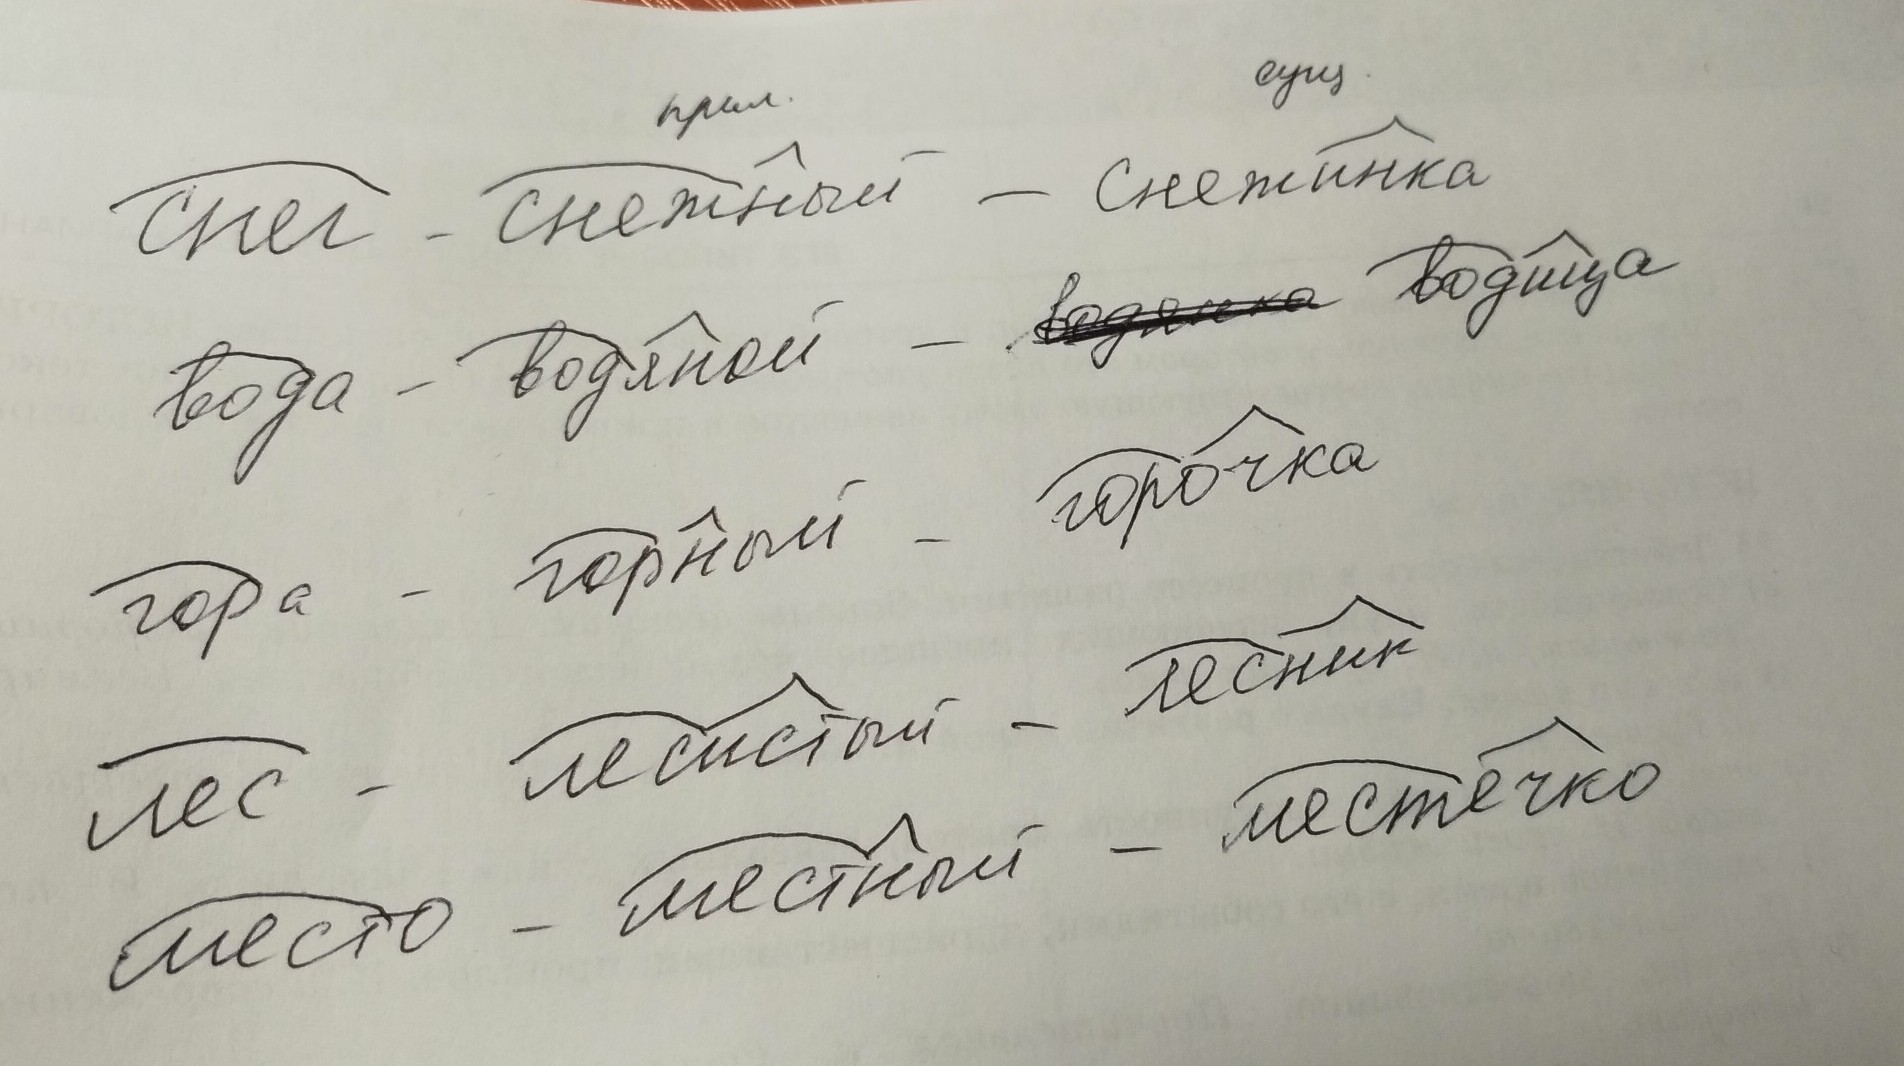 прил. сущ.
снег - снежный - снежинка
вода - водяной - водянка водица
гора - горный - горочка
лес - лесистый - лесник
место - местный - местечко